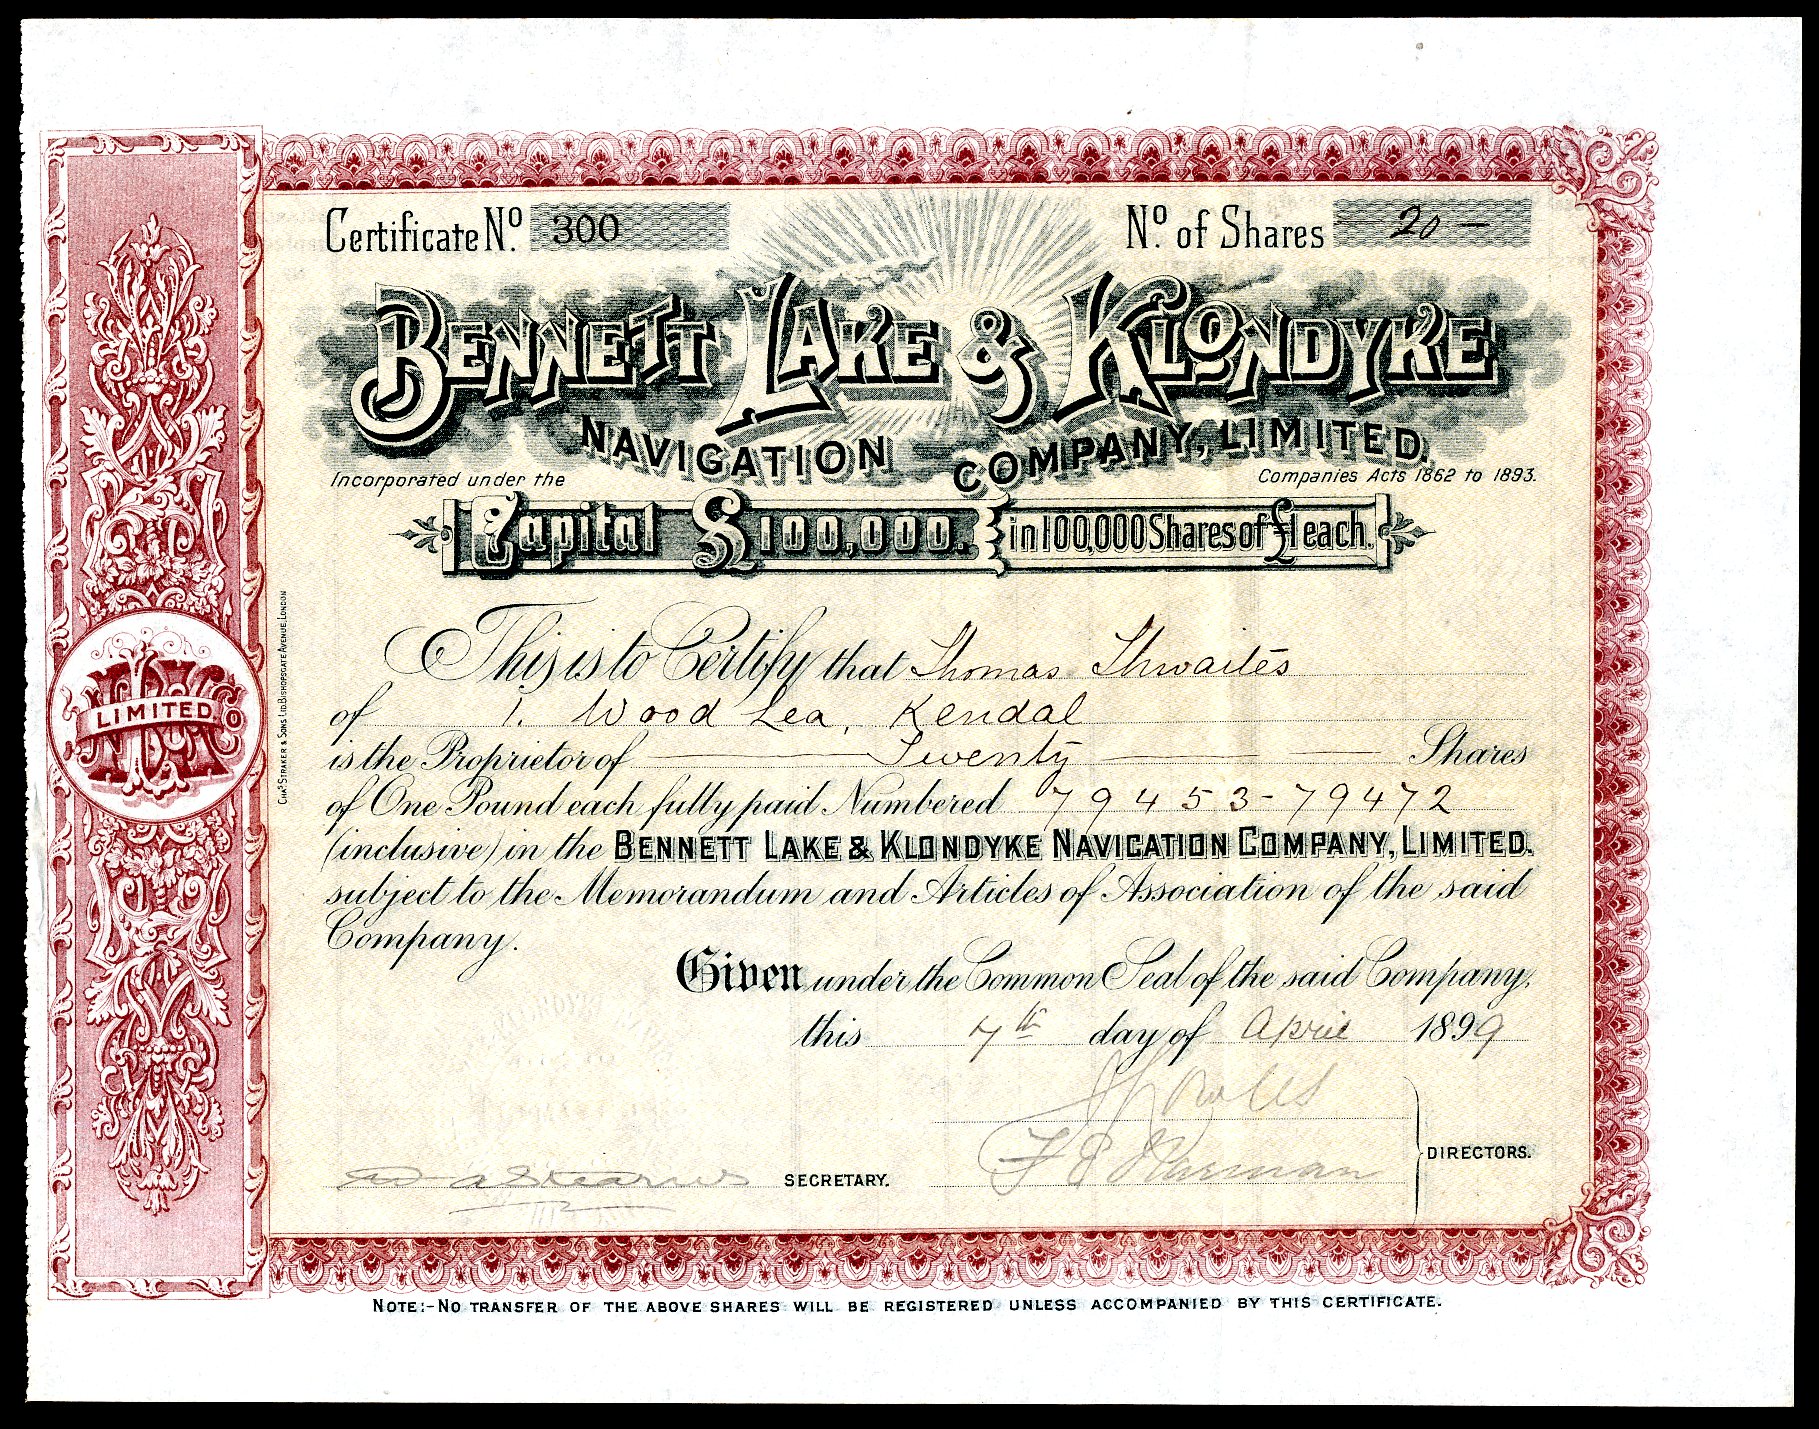 Certificate No. 300
No. of Shares 20 —
BENNETT LAKE & KLONDYKE
NAVIGATION COMPANY, LIMITED.
Incorporated under the Companies Acts 1862 to 1893.
Capital £100,000. in 100,000 Shares of £1 each.
This is to Certify that Thomas Thwaites
of 1. Wood Lea, Kendal
is the Proprietor of — Twenty — — Shares
of One Pound each fully paid Numbered 79453-79472
(inclusive) in the BENNETT LAKE & KLONDYKE NAVIGATION COMPANY, LIMITED.
subject to the Memorandum and Articles of Association of the said
Company.
Given under the Common Seal of the said Company,
this 7th day of April 1899
DIRECTORS.
SECRETARY.
NOTE:-NO TRANSFER OF THE ABOVE SHARES WILL BE REGISTERED UNLESS ACCOMPANIED BY THIS CERTIFICATE.
LIMITED
CHAS STRAKER & SONS LTD. BISHOPSGATE AVENUE, LONDON